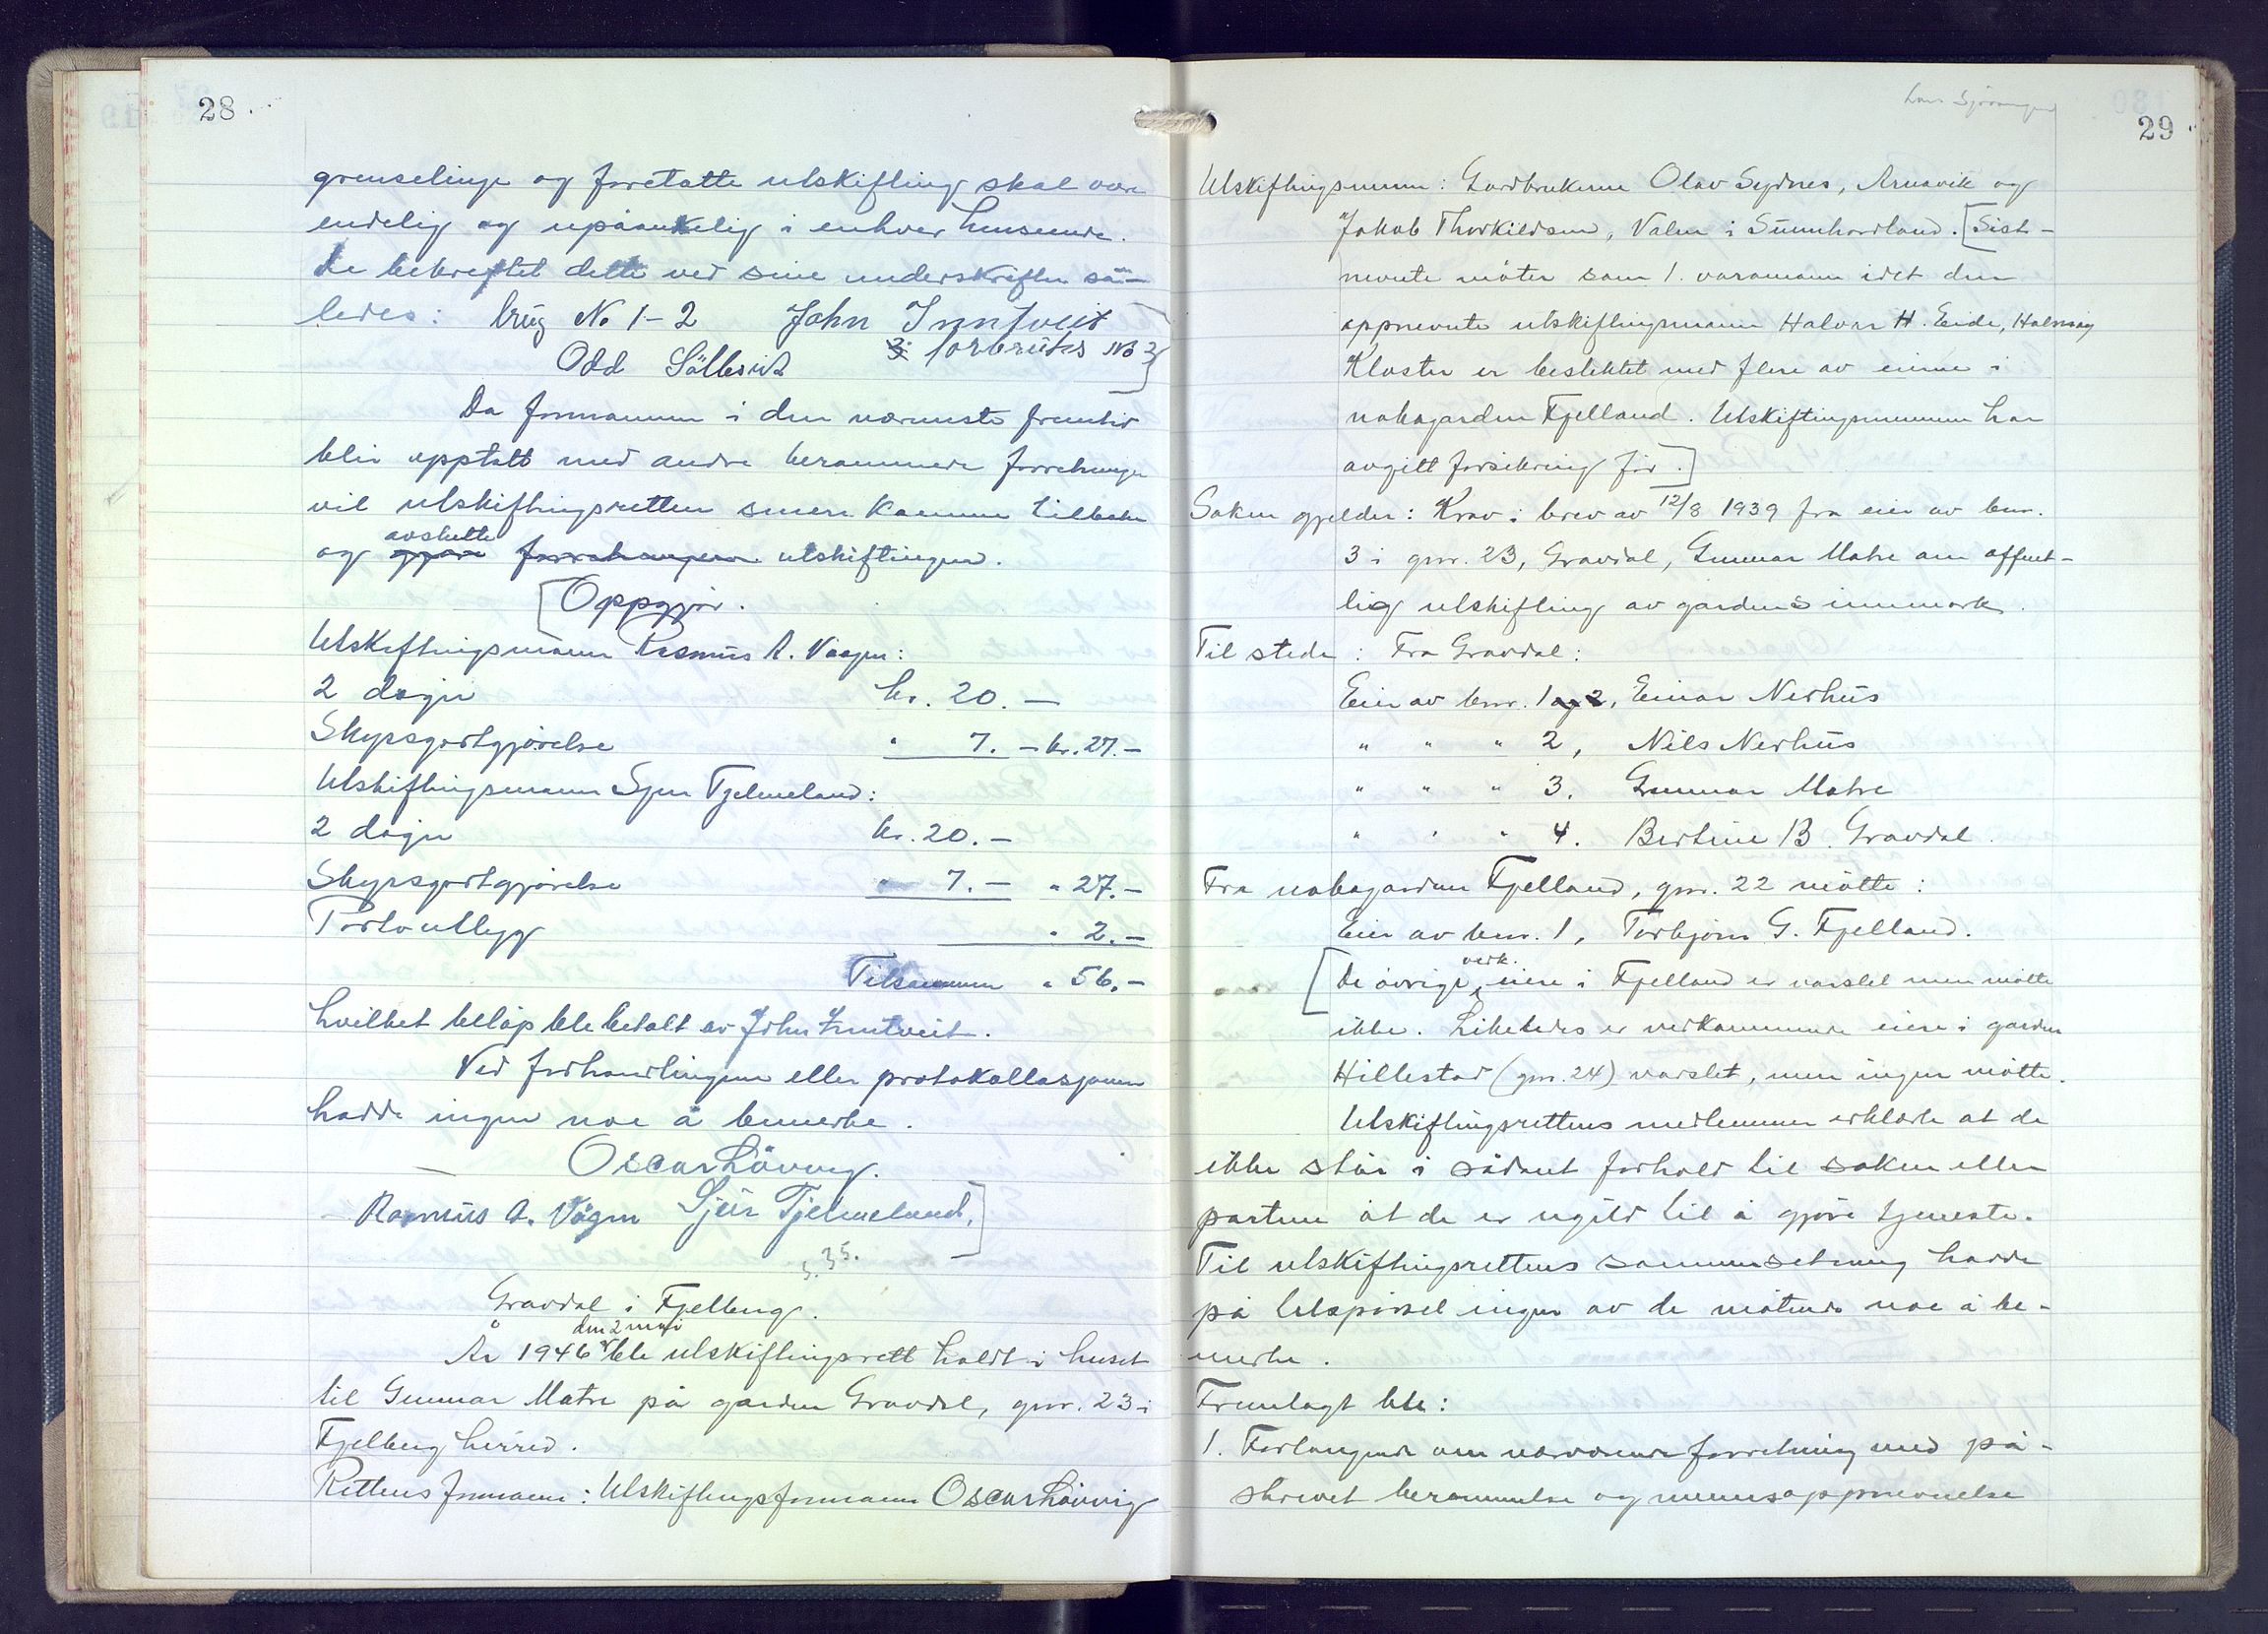 28
grenselinje og foretatte utskifting skal være
endelig og upåankelig i enhver henseende.
De bekreftet dette ved sine underskrifter så-
ledes: brug No 1-2 John Inntveit
for bruks No 3
Odd Sållesvik
Da formannen i den nærmeste fremtid
blir opptatt med andre berammede forretninger
vil utskiftingsretten senere komme tilbake
avslutte
og gjøre forretningen utskiftingen.
Oppgjør.
Utskiftingsmann Rasmus A. Vaagen:
2 dager kr. 20.—
Skyssgodtgjørelse " 7.— kr. 27.—
Utskiftingsmann Sjur Tjelmeland:
2 dager kr. 20.—
Skyssgodtgjørelse " 7.— " 27.—
Portoutlegg " 2.—
Tilsammen " 56.—
hvilket beløp ble betalt av John Inntveit.
Ved forhandlingene eller protokollasjonen
hadde ingen noe å bemerke.
Oscar Lövvig.
Rasmus A. Vågen Sjur Tjelmeland.
s. 35.
Gravdal i Fjelberg.
den 2 mai
År 1946 ble utskiftingsrett holdt i huset
til Gunnar Matre på garden Gravdal, gnr. 23 i
Fjelberg herred.
Rettens formann: Utskiftingsformann Oscar Lövvig
29
Utskiftingsmenn: Gardbrukerne Olav Sydnes, Arnavik og
Jakob Thorkildsen, Valen i Sunnhordland. [Sist-
nevnte møter som 1. varamann idet den
oppnevnte utskiftingsmann Halvor H. Eide, Halsnøy
Kloster er beslektet med flere av eierne i
nabogarden Fjelland. Utskiftingsmennene har
avgitt forsikring før.]
Saken gjelder: Krav i brev av 12/8 1939 fra eier av bnr.
3 i gnr. 23, Gravdal, Gunnar Matre om offent-
lig utskifting av gardens innmark.
Til stede: Fra Gravdal:
Eier av bnr. 1 og 2, Einar Nerhus
" " " 2, Nils Nerhus
" " " 3. Gunnar Matre
" " " 4. Bertine B. Gravdal.
Fra nabogarden Fjelland, gnr. 22 møtte:
Eier av bnr. 1, Torbjørn G. Fjelland.
vedk.
[De øvrige eiere i Fjelland er varslet men møtte
ikke. Likeledes er vedkommende eiere i garden
Hillestad (gnr. 24) varslet, men ingen møtte.
Utskiftingsrettens medlemmer erklærte at de
ikke står i sådant forhold til saken eller
partene at de er ugild til å gjøre tjeneste.
Til utskiftingsrettens sammensetning hadde
på tilspørsel ingen av de møtende noe å be-
merke.
Fremlagt ble:
1. Forlangende om nærværende forretning med på-
skrevet berammelse og mennsoppnevnelse